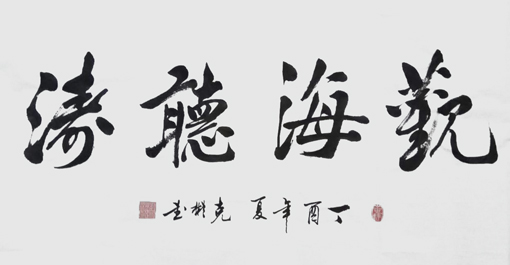 觀海聽濤
丁酉年夏 克彬書